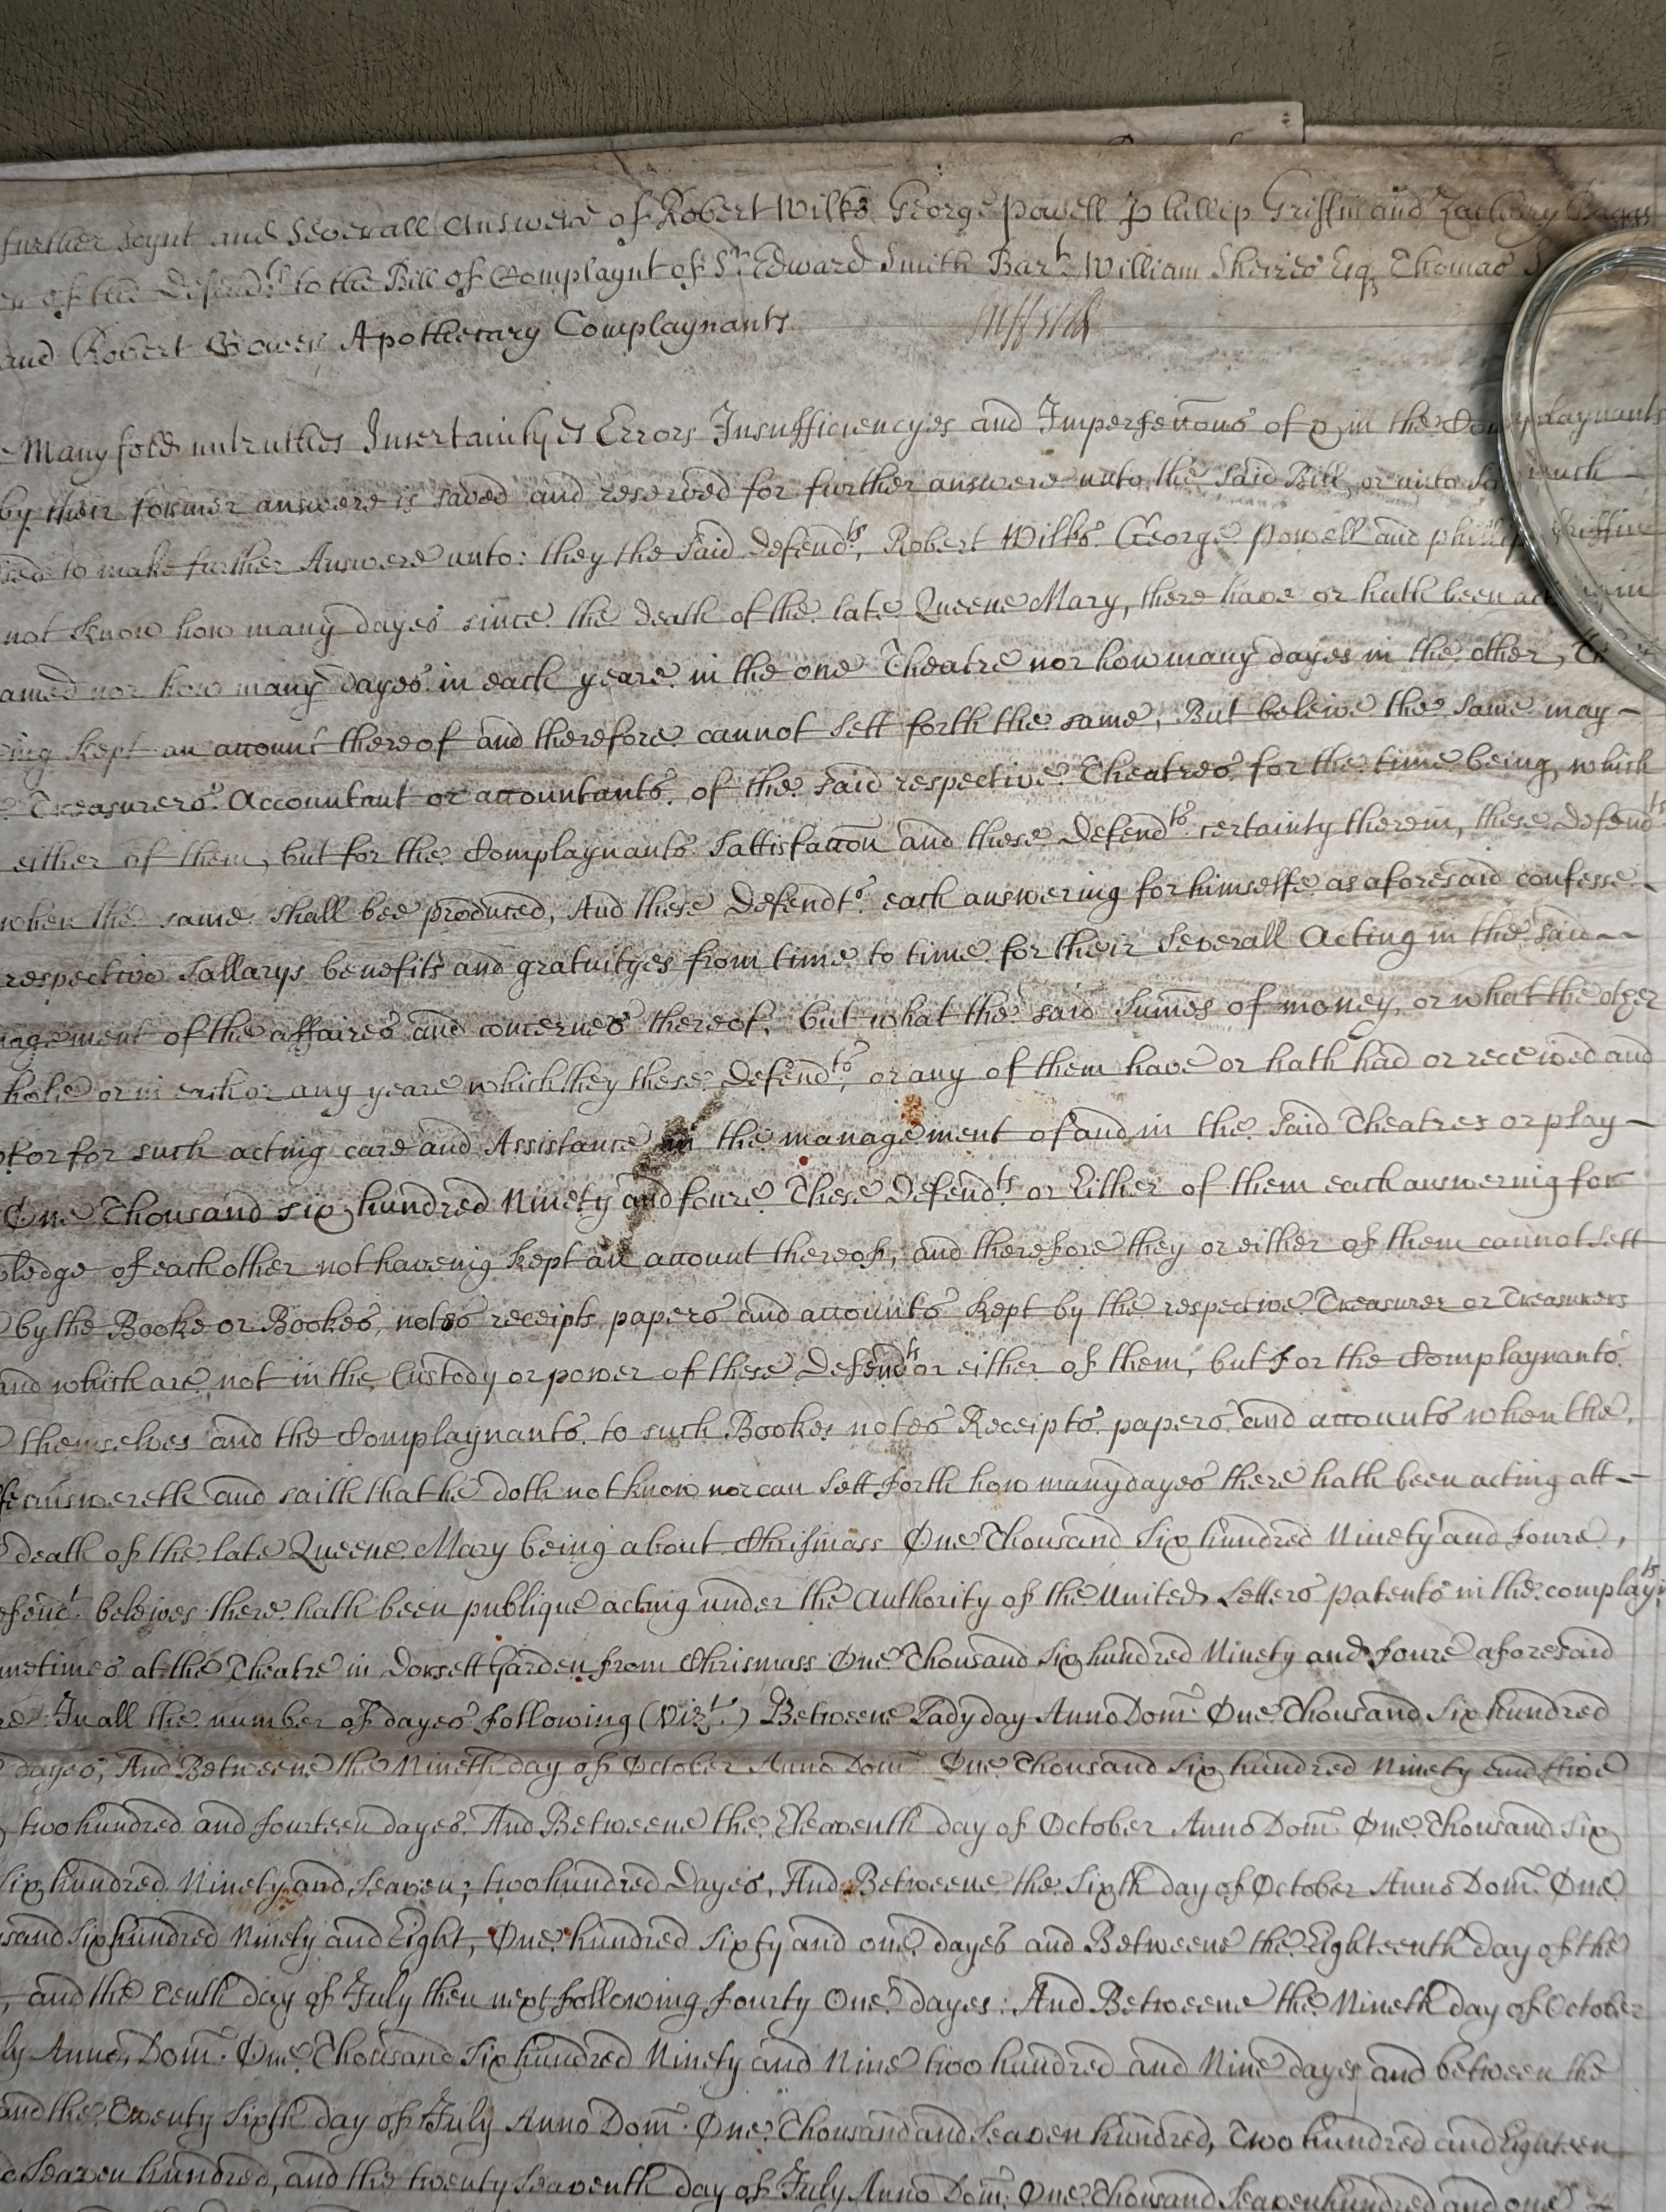 further Joynt and Severall Answere of Robert Wilks George Powell Phillip Griffin and Zachary Baggs
of the Defendts to the Bill of Complaynt of Sr Edward Smith Bart William Sheires Esq Thomas
and Robert Gower Apothecary Complaynants
Manyfold untruthes Incertaintyes Errors Insufficiencyes and Imperfeccons of & in the Complaynants
by their former answere is saved and reserved for further answere unto the said Bill, or unto so much
to make further Answere unto: they the said Defendts, Robert Wilks George Powell and phillip Griffin
not know how many dayes since the death of the late Queene Mary, there have or hath been
named nor how many dayes in each yeare in the one Theatre nor how many dayes in the other,
kept an account thereof and therefore cannot sett forth the same, But beleive the same may
Treasurers Accountant or accountants of the said respective Theatres for the time being, which
either of them, but for the Complaynants Sattisfaccon and these Defendts certainty therein, these Defendts
when the same shall bee produced, And these Defendts each answering for himselfe as aforesaid confesse
respective Sallarys benefits and gratuityes from time to time for their Severall Acting in the said
agement of the affaires and concernes thereof, but what the said Summes of money, or what the other
or in each or any yeare which they these Defendts, or any of them have or hath had or received and
or for such acting care and Assistance in the management of and in the said Theatres or play
One Thousand six hundred Ninety and foure These Defendts or Either of them each answering for
ledge of each other not haveing kept an account thereof, and therefore they or either of them cannot sett
by the Booke or Bookes, notes receipts papers and accounts kept by the respective Treasurer or Treasurers
and which are not in the Custody or power of these Defendts or either of them, but for the Complaynants
themselves and the Complaynants to such Bookes notes Receipts papers and accounts when the
answereth and saith that he doth not know nor can sett forth how many dayes there hath been acting att
death of the late Queene Mary being about Chrismass One Thousand Six hundred Ninety and foure,
Defendt beleives there hath been publique acting under the Authority of the United Letters Patents in the complayts
metimes at the Theatre in Dorsett Garden from Chrismass One Thousand Six hundred Ninety and foure aforesaid
In all the number of dayes following (Vizt.) Betweene Ladyday Anno Dom. One Thousand Six hundred
dayes, And Betweene the Nineth day of October Anno Dom One Thousand Six hundred Ninety and five
two hundred and fourteen dayes. And Betweene the Eleaventh day of October Anno Dom. One Thousand Six
Six hundred Ninety and Seaven; two hundred Dayes, And Betweene the Sixth day of October Anno Dom. One
sand Six hundred Ninety and Eight, One hundred Sixty and one dayes and Betweene the Eighteenth day of the
, and the Tenth day of July then next following fourty One dayes: And Betweene the Nineth day of October
ly Anno Dom. One Thousand Six hundred Ninety and Nine two hundred and Nine dayes and between the
and the Twenty Sixth day of July Anno Dom. One Thousand and Seaven hundred, Two hundred and Eighteen
Seaven hundred, and the twenty Seaventh day of July Anno Dom. One Thousand Seaven hundred and one